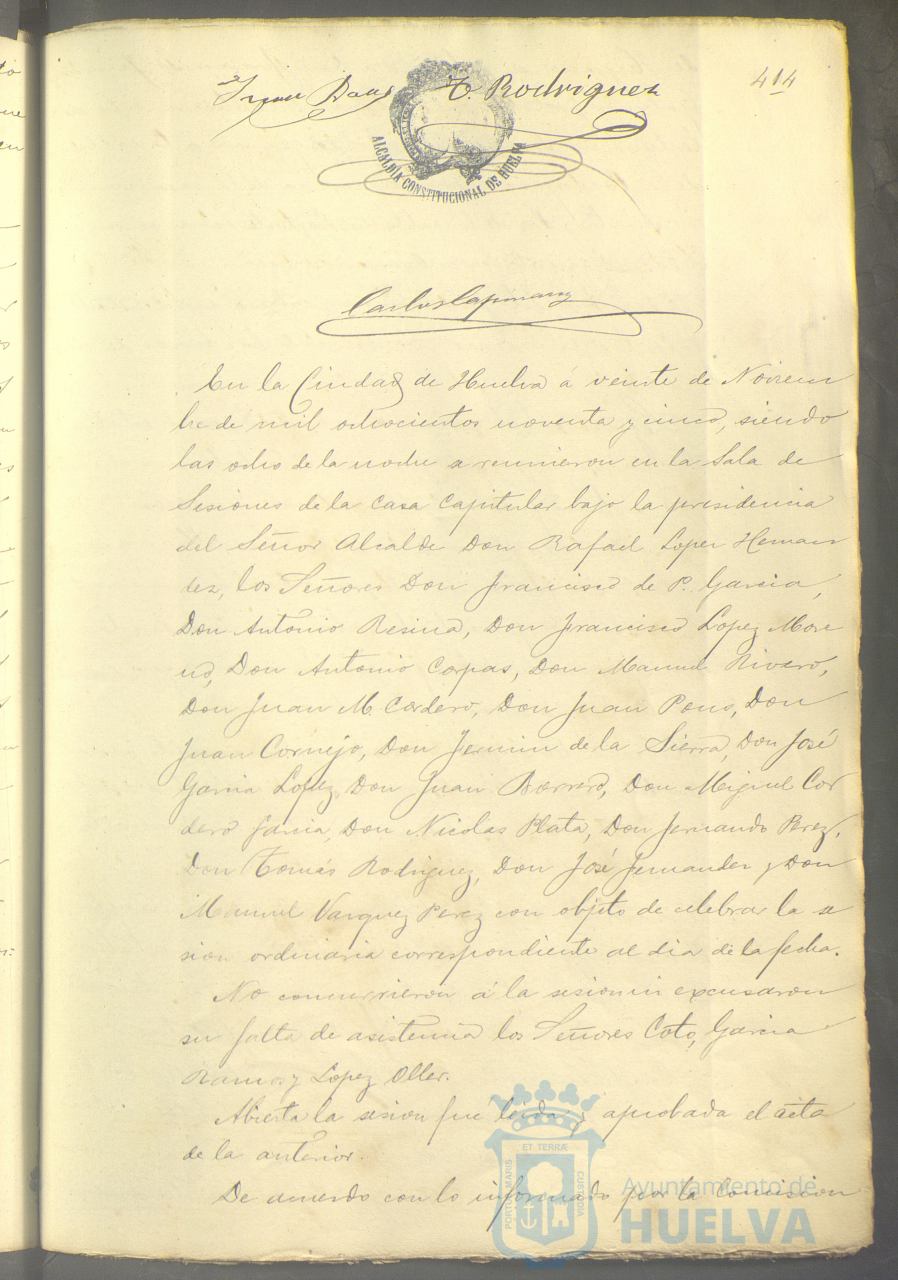 T. Rodriguez
414
ALCALDIA CONSTITUCIONAL DE HUELVA
Carlos Capmany
En la Ciudad de Huelva á veinte de Noviem
bre de mil ochocientos noventa y cinco, siendo
las ocho de la noche se reunieron en la Sala de
Sesiones de la casa capitular bajo la presidencia
del Señor Alcalde Don Rafael Lopez Hernan
dez, los Señores Don Francisco de P. Garcia,
Don Antonio Resina, Don Francisco Lopez More
no, Don Antonio Corpas, Don Manuel Rivero,
Don Juan M. Cordero, Don Juan Pons, Don
Juan Cornejo, Don Fermin de la Sierra, Don José
Garcia Lopez, Don Juan Borrero, Don Miguel Cor
dero Garcia, Don Nicolas Plata, Don Fernando Perez,
Don Tomás Rodriguez, Don José Fernandez y Don
Manuel Vazquez Perez con objeto de celebrar la se
sion ordinaria correspondiente al dia de la fecha.
No concurrieron á la sesion ni excusaron
su falta de asistencia los Señores Coto, Garcia
Ramos y Lopez Oller.
Abierta la sesion fue leida y aprobada el acta
de la anterior.
De acuerdo con lo informado por la Comision
PORTUS MARIS ET TERRÆ CUSTODIA
Ayuntamiento de
HUELVA